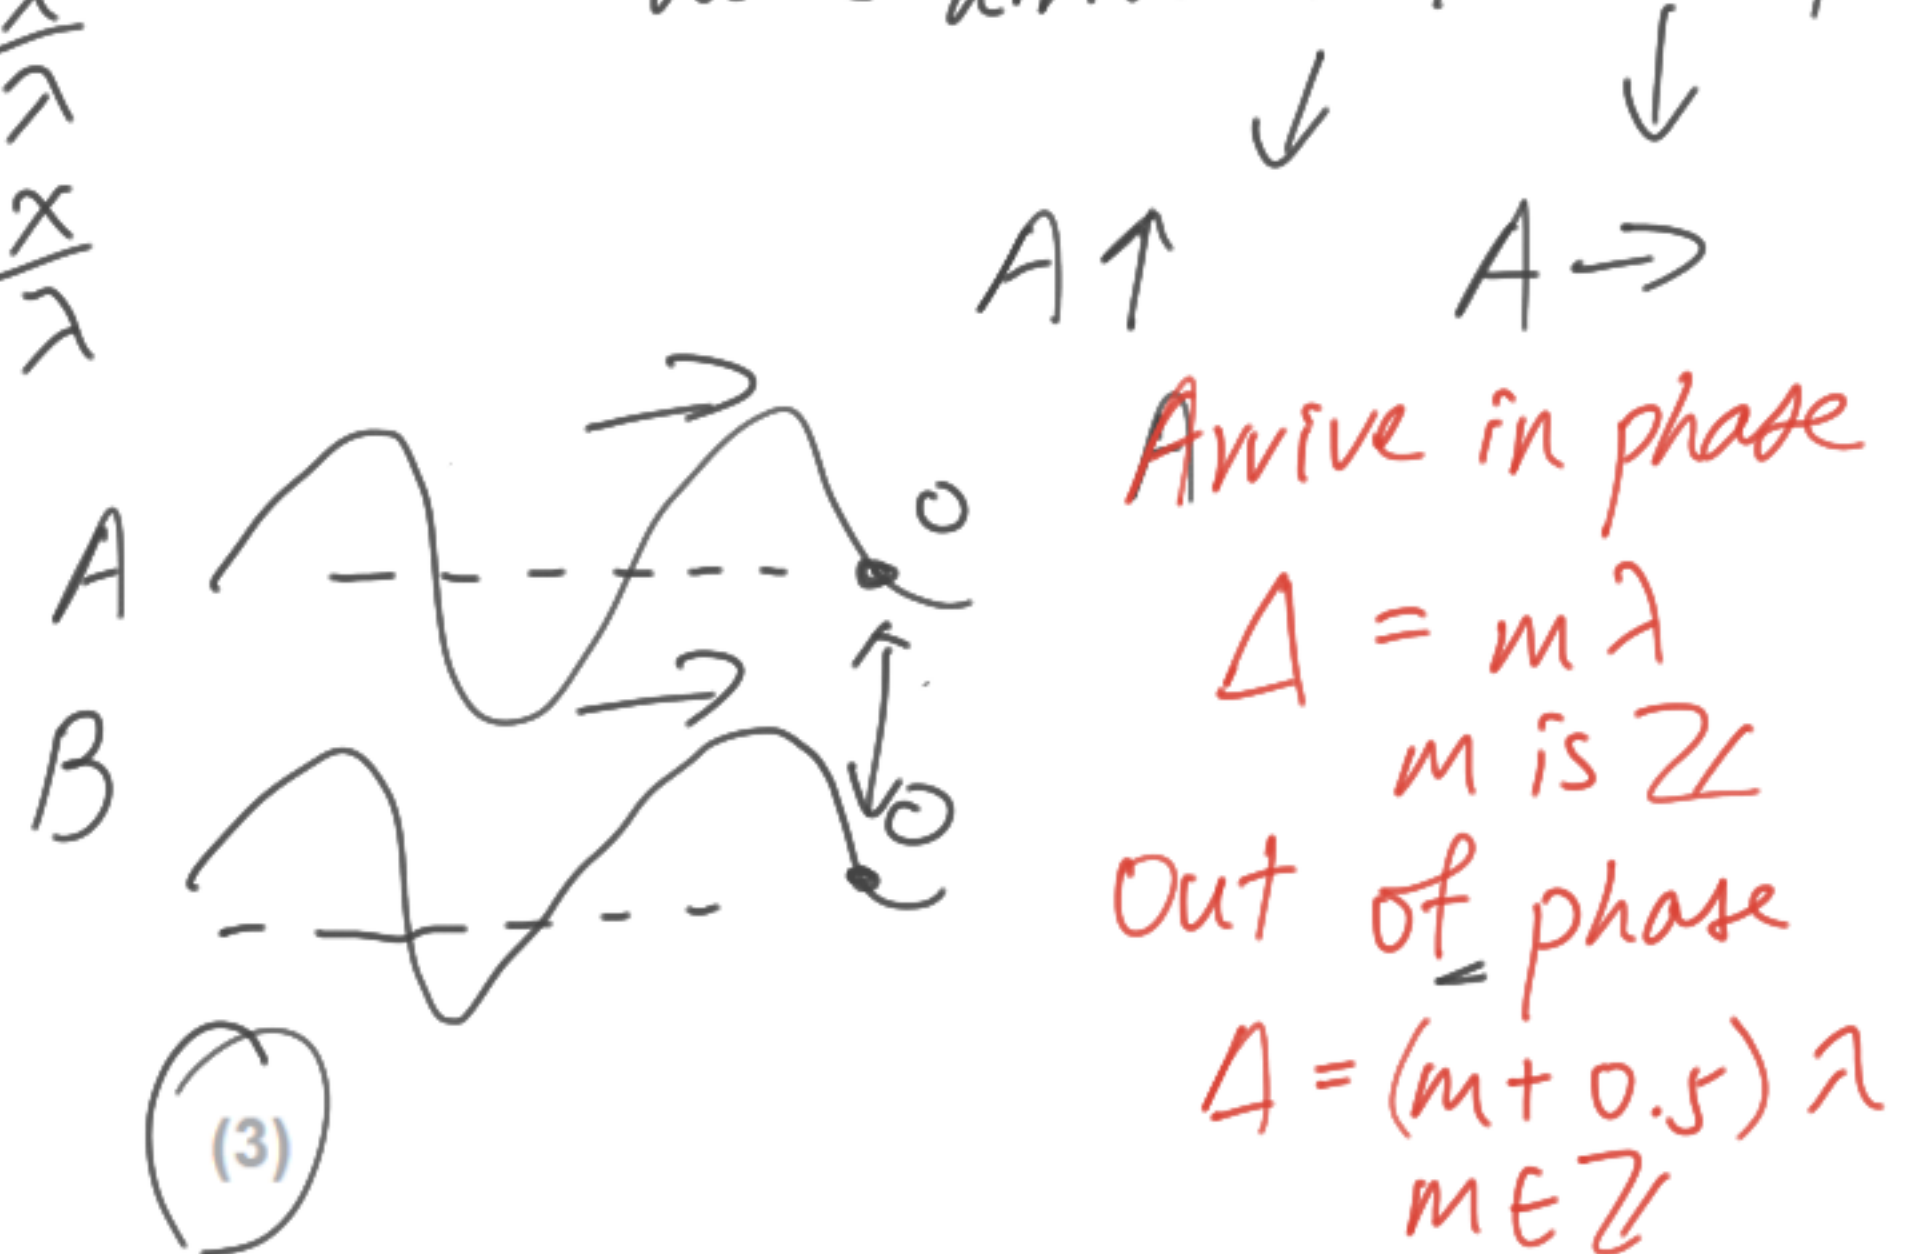 λ
x
λ
A ↑ A →
Arrive in phase
A
O
Δ = mλ
m is ℤ
B
O
Out of phase
Δ = (m + 0.5) λ
(3)
m ∈ ℤ